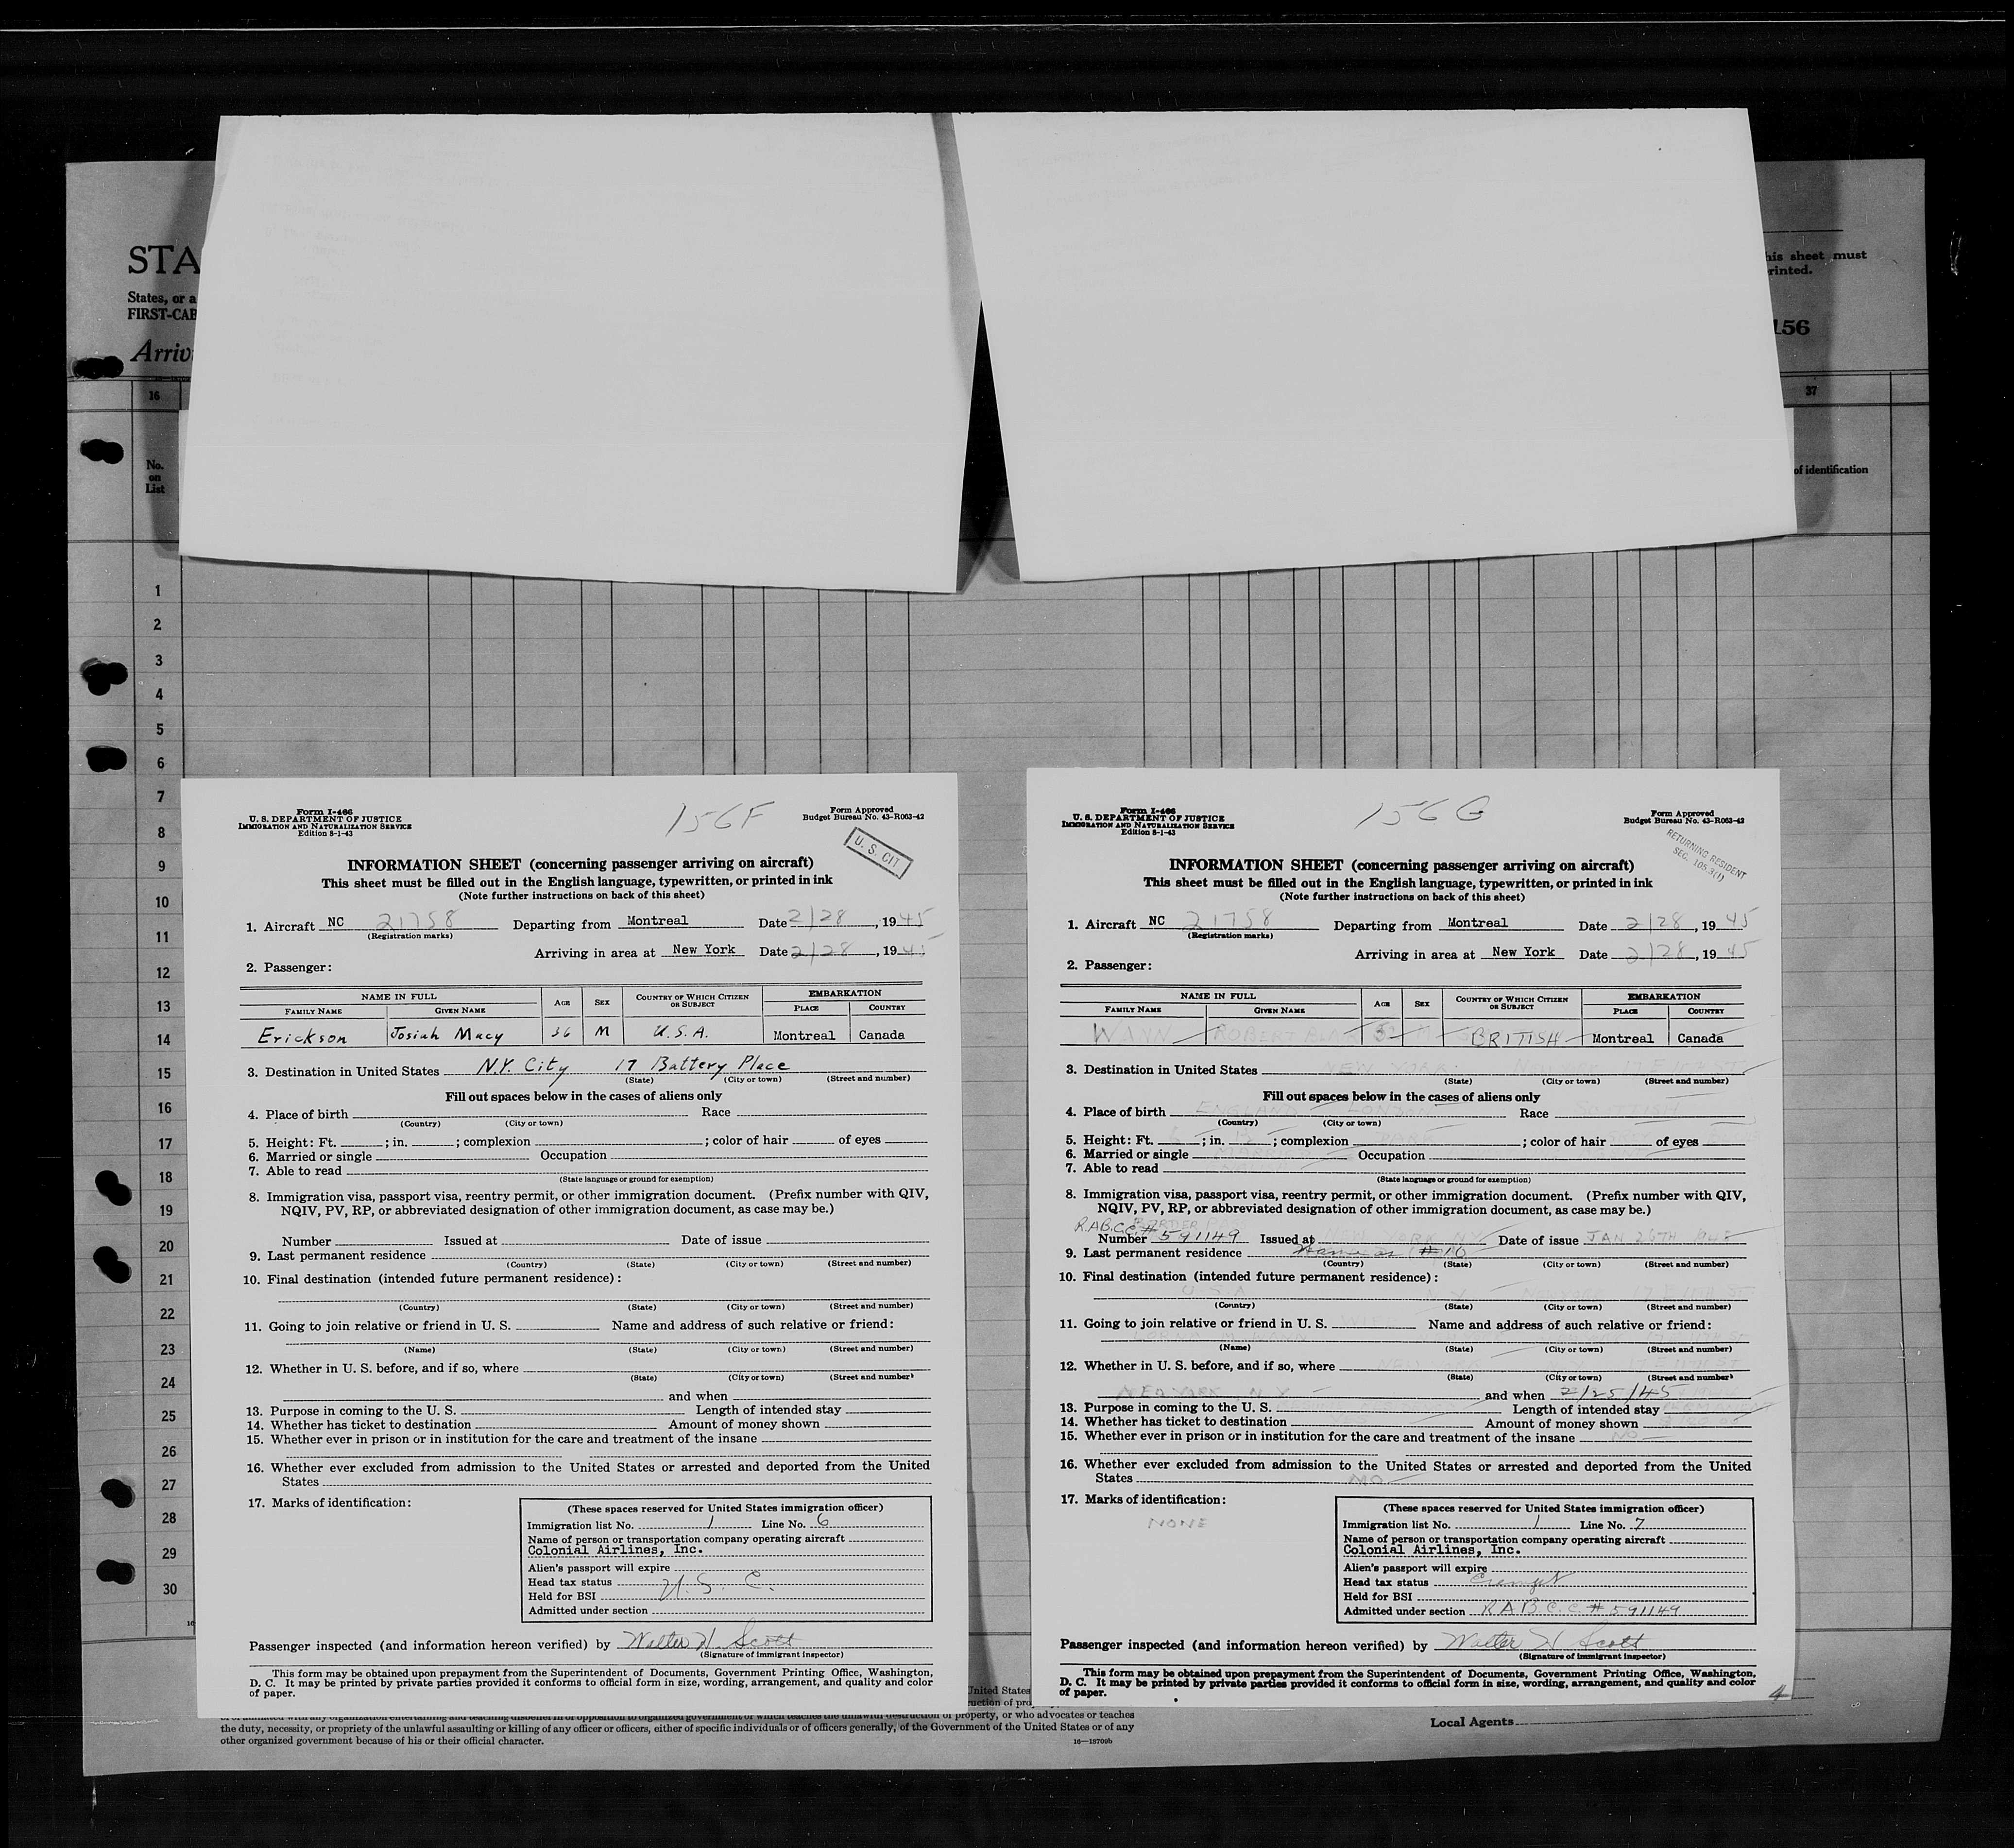 STA
States, or a
FIRST-CAB
Arriv
his sheet must
rinted.
156
16
37
No.
on
List
of identification
1
2
3
4
5
6
7
8
9
10
11
12
13
14
15
16
17
18
19
20
21
22
23
24
25
26
27
28
29
30
Form I-466
U. S. DEPARTMENT OF JUSTICE
IMMIGRATION AND NATURALIZATION SERVICE
Edition 8-1-43
156F
Form Approved
Budget Bureau No. 43-R063-42
U. S. CIT
INFORMATION SHEET (concerning passenger arriving on aircraft)
This sheet must be filled out in the English language, typewritten, or printed in ink
(Note further instructions on back of this sheet)
1. Aircraft NC 21758 Departing from Montreal Date 2/28, 1945
(Registration marks)
Arriving in area at New York Date 2/28, 1945
2. Passenger:
NAME IN FULL AGE SEX COUNTRY OF WHICH CITIZEN OR SUBJECT EMBARKATION
FAMILY NAME GIVEN NAME PLACE COUNTRY
Erickson Josiah Macy 36 M U.S.A. Montreal Canada
3. Destination in United States N.Y. City 17 Battery Place
(State) (City or town) (Street and number)
Fill out spaces below in the cases of aliens only
4. Place of birth Race
(Country) (City or town)
5. Height: Ft. ; in. ; complexion ; color of hair of eyes
6. Married or single Occupation
7. Able to read
(State language or ground for exemption)
8. Immigration visa, passport visa, reentry permit, or other immigration document. (Prefix number with QIV,
NQIV, PV, RP, or abbreviated designation of other immigration document, as case may be.)
Number Issued at Date of issue
9. Last permanent residence
(Country) (State) (City or town) (Street and number)
10. Final destination (intended future permanent residence):
(Country) (State) (City or town) (Street and number)
11. Going to join relative or friend in U. S. Name and address of such relative or friend:
(Name) (State) (City or town) (Street and number)
12. Whether in U. S. before, and if so, where
(State) (City or town) (Street and number)
and when
13. Purpose in coming to the U. S. Length of intended stay
14. Whether has ticket to destination Amount of money shown
15. Whether ever in prison or in institution for the care and treatment of the insane
16. Whether ever excluded from admission to the United States or arrested and deported from the United
States
17. Marks of identification:
(These spaces reserved for United States immigration officer)
Immigration list No. 1 Line No. 6
Name of person or transportation company operating aircraft
Colonial Airlines, Inc.
Alien's passport will expire
Head tax status U. S. C.
Held for BSI
Admitted under section
Passenger inspected (and information hereon verified) by Walter H. Scott
(Signature of immigrant inspector)
This form may be obtained upon prepayment from the Superintendent of Documents, Government Printing Office, Washington,
D. C. It may be printed by private parties provided it conforms to official form in size, wording, arrangement, and quality and color
of paper.
Form I-466
U. S. DEPARTMENT OF JUSTICE
IMMIGRATION AND NATURALIZATION SERVICE
Edition 8-1-43
156G
Form Approved
Budget Bureau No. 43-R063-42
RETURNING RESIDENT
SEC. 105.3(1)
INFORMATION SHEET (concerning passenger arriving on aircraft)
This sheet must be filled out in the English language, typewritten, or printed in ink
(Note further instructions on back of this sheet)
1. Aircraft NC 21758 Departing from Montreal Date 2/28, 1945
(Registration marks)
Arriving in area at New York Date 2/28, 1945
2. Passenger:
NAME IN FULL AGE SEX COUNTRY OF WHICH CITIZEN OR SUBJECT EMBARKATION
FAMILY NAME GIVEN NAME PLACE COUNTRY
WANN ROBERT M BRITISH Montreal Canada
3. Destination in United States NEW YORK
(State) (City or town) (Street and number)
Fill out spaces below in the cases of aliens only
4. Place of birth ENGLAND LONDON Race SCOTTISH
(Country) (City or town)
5. Height: Ft. ; in. ; complexion DARK ; color of hair of eyes
6. Married or single MARRIED Occupation
7. Able to read
(State language or ground for exemption)
8. Immigration visa, passport visa, reentry permit, or other immigration document. (Prefix number with QIV,
NQIV, PV, RP, or abbreviated designation of other immigration document, as case may be.)
R.A.B.C.C. #
Number 591149 Issued at NEW YORK NY Date of issue JAN 26TH
9. Last permanent residence Same as #10
(Country) (State) (City or town) (Street and number)
10. Final destination (intended future permanent residence):
U S A N.Y.
(Country) (State) (City or town) (Street and number)
11. Going to join relative or friend in U. S. Name and address of such relative or friend:
(Name) (State) (City or town) (Street and number)
12. Whether in U. S. before, and if so, where
(State) (City or town) (Street and number)
NEW YORK N.Y. and when 2/25/45
13. Purpose in coming to the U. S. Length of intended stay
14. Whether has ticket to destination Amount of money shown
15. Whether ever in prison or in institution for the care and treatment of the insane NO
16. Whether ever excluded from admission to the United States or arrested and deported from the United
States NO
17. Marks of identification:
NONE
(These spaces reserved for United States immigration officer)
Immigration list No. 1 Line No. 7
Name of person or transportation company operating aircraft
Colonial Airlines, Inc.
Alien's passport will expire
Head tax status Exempt
Held for BSI
Admitted under section R A B C C # 591149
Passenger inspected (and information hereon verified) by Walter H Scott
(Signature of immigrant inspector)
This form may be obtained upon prepayment from the Superintendent of Documents, Government Printing Office, Washington,
D. C. It may be printed by private parties provided it conforms to official form in size, wording, arrangement, and quality and color
of paper.
4
United States
property, or who advocates or teaches
the duty, necessity, or propriety of the unlawful assaulting or killing of any officer or officers, either of specific individuals or of officers generally, of the Government of the United States or of any
other organized government because of his or their official character.
16—18709b
Local Agents